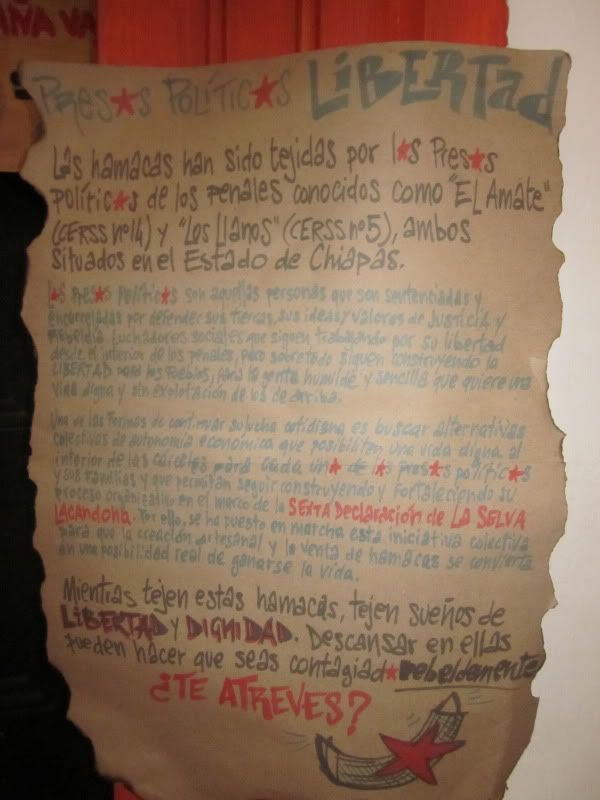 IÑA VA
PRES★S POLÍTIC★S LiBERTad
Las hamacas han sido tejidas por l★s Pres★s
Polític★s de los penales conocidos como "EL Amate"
(CERSS nº14) y "Los Llanos" (CERSS nº5), ambos
situados en el Estado de Chiapas.
l★s Pres★s polític★s son aquellas personas que son sentenciadas y
encarceladas por defender sus tierras, sus ideas y valores de JUSTICIA y
Rebeldía. Luchadores sociales que siguen trabajando por su libertad
desde el interior de los penales, pero sobretodo siguen construyendo la
LIBERTAD para los Pueblos, para la gente humilde y sencilla que quiere una
vida digna y sin explotación de los de arriba.
Una de las formas de continuar su lucha cotidiana es buscar alternativas
colectivas de autonomía económica que posibiliten una vida digna al
interior de las cárceles para cada un★ de l★s pres★s polític★s
y sus familias y que permitan seguir construyendo y fortaleciendo su
proceso organizativo en el marco de la SEXTA DEclaración de LA SELVA
LACANDONA. Por ello, se ha puesto en marcha esta iniciativa colectiva
para que la creación artesanal y la venta de hamacas se convierta
en una posibilidad real de ganarse la vida.
Mientras tejen estas hamacas, tejen sueños de
LIBERTAD y DIGNIDAD. Descansar en ellas
pueden hacer que seas contagiad★ rebeldemente
¿TE ATREVES?